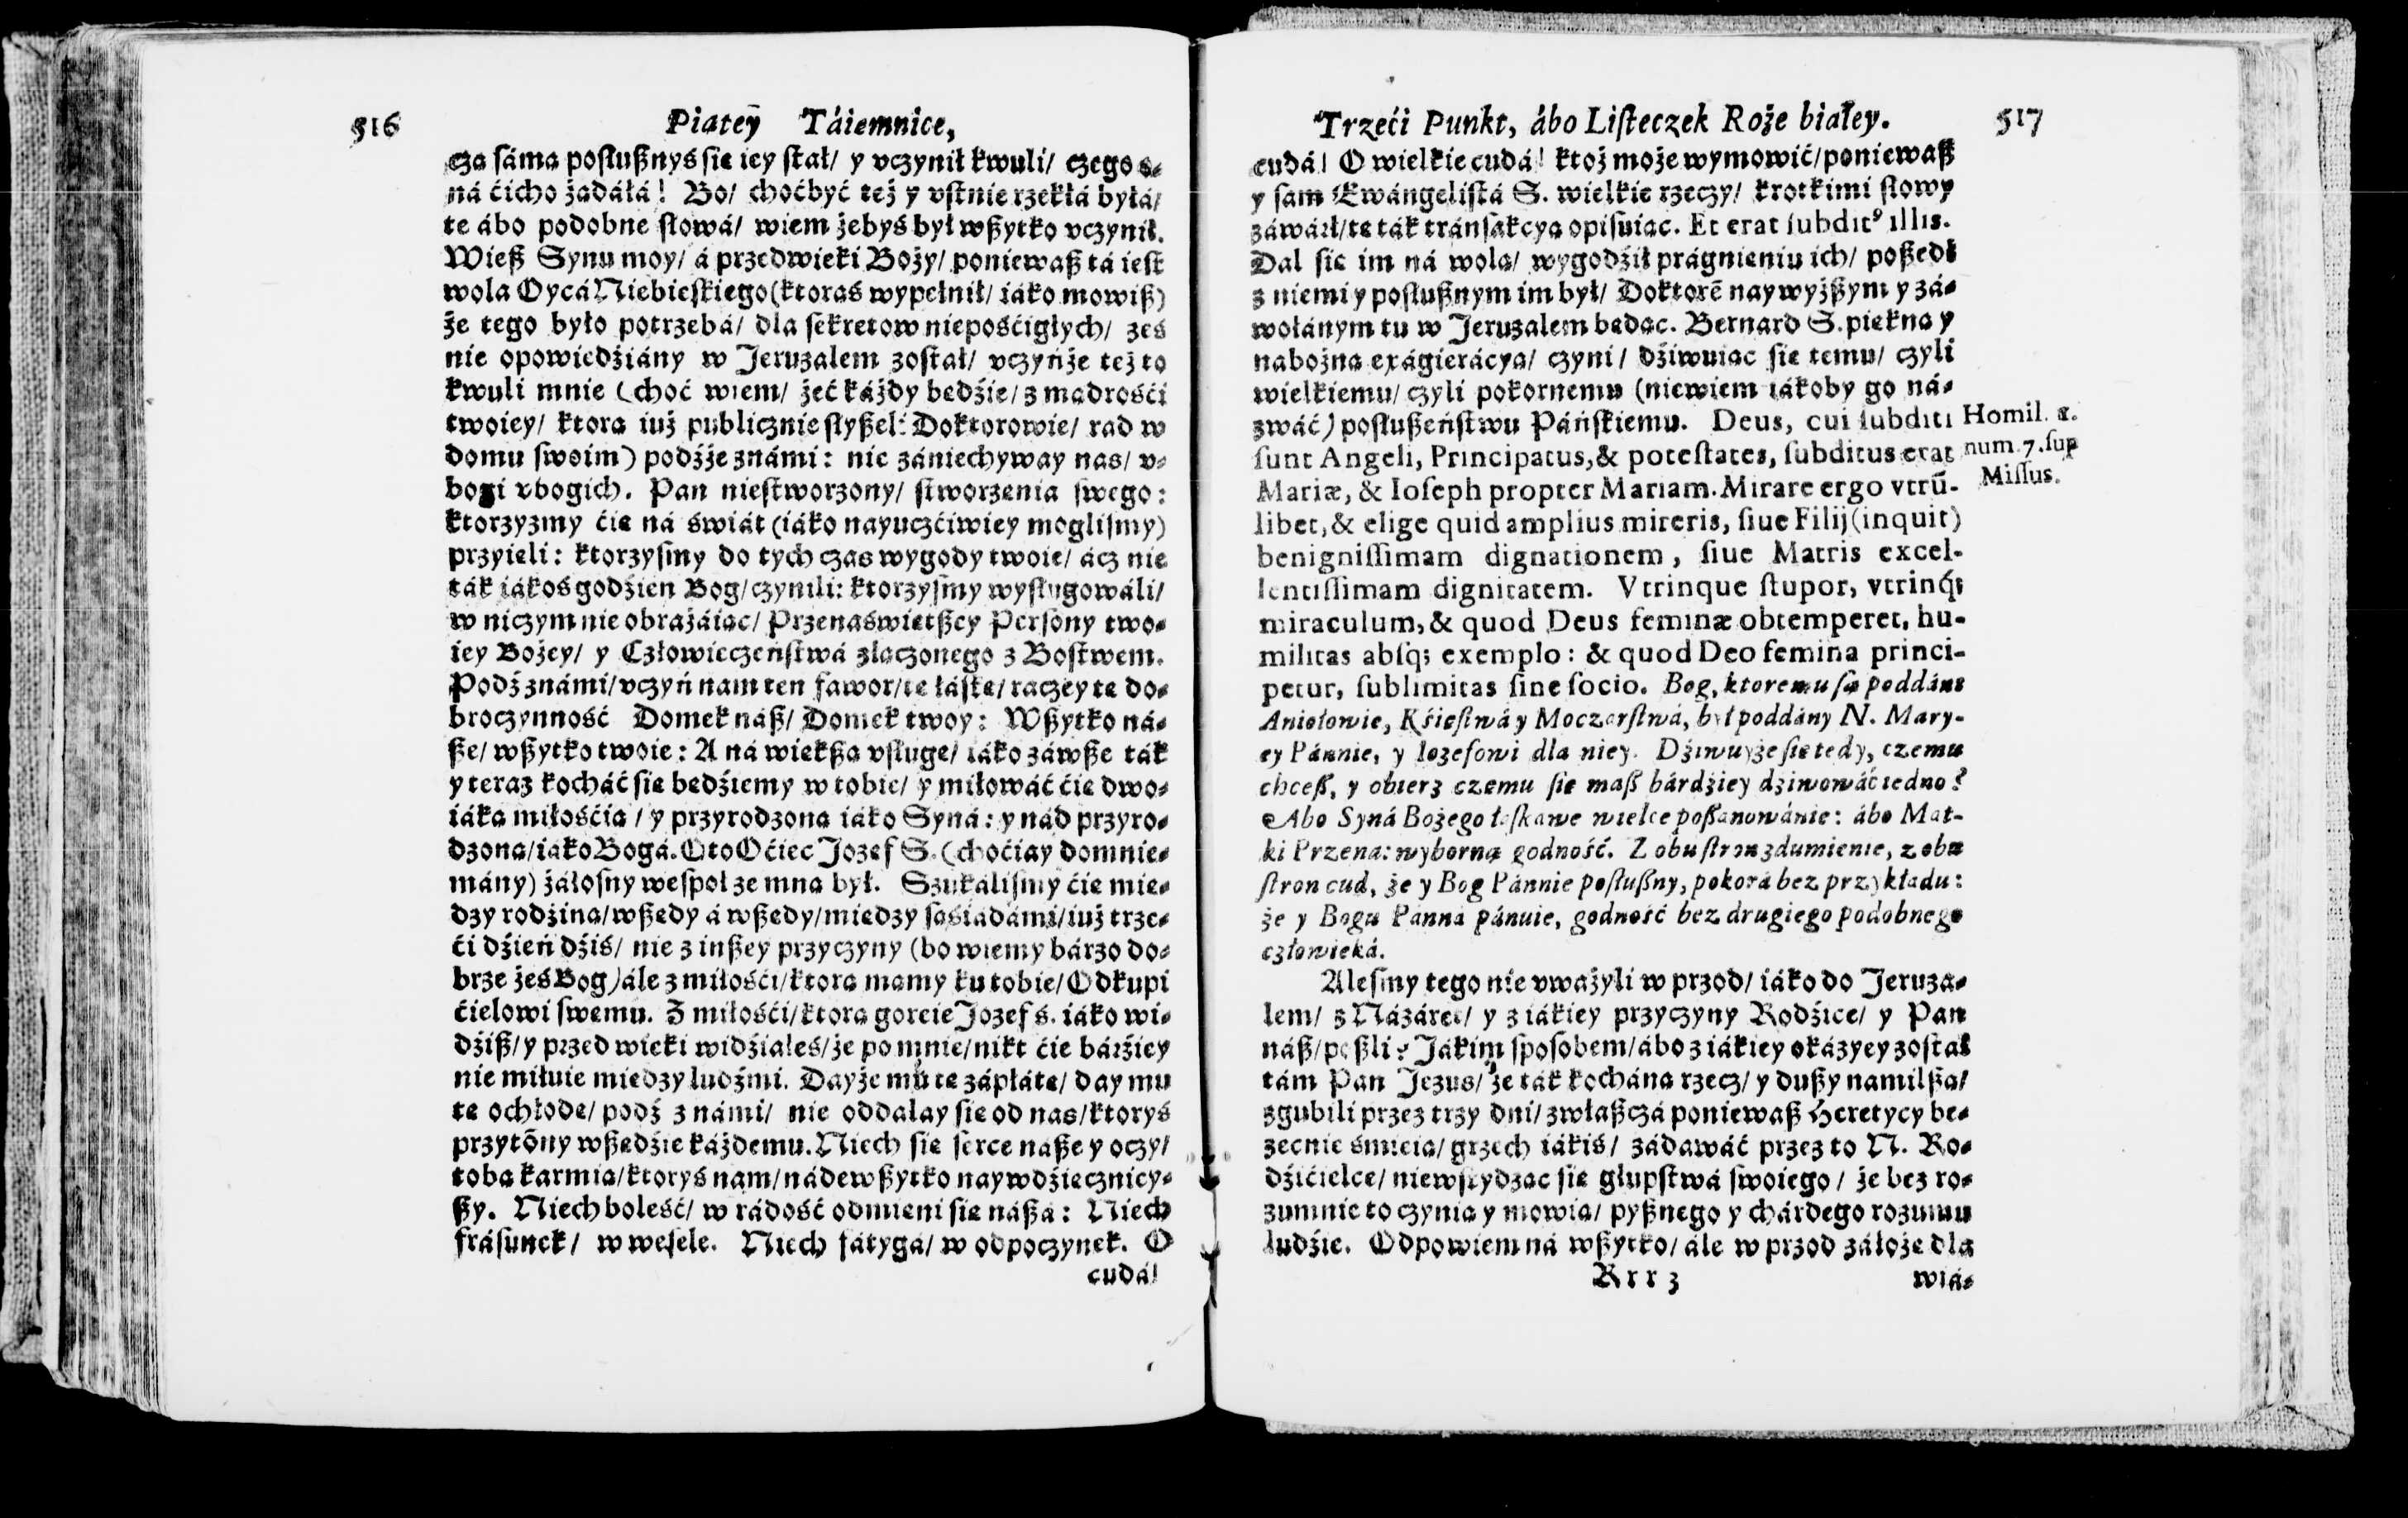 516 Piatey̅ Táiemnice,
cża sáma posłußnyś sie iey stał/ y vczynił kwuli/ czego o-
ná ćicho żądáłá! Bo/ choćbyć też y vstnie rzekłá byłá/
te ábo podobne słowá/ wiem żebyś był wßytko vczynił.
Wieß Synu moy/ á przedwieki Boży/ poniewaß tá iest
wola Oycá Niebieskiego (ktorąś wypełnił/ iáko mowiß)
że tego było potrzebá/ dla sekretow niepośćigłych/ żeś
nie opowiedźiány w Jeruzalem został/ vczyńże też to
kwuli mnie (choć wiem/ żeć káżdy będźie/ z mądrośći
twoiey/ ktorą iuż publicznie słyßeli Doktorowie/ rad w
domu swoim) podźże známi: nie zániechyway nas/ v-
bogi vbogich. Pan niestworzony/ stworzenia swego:
ktorzyzmy ćię ná świát (iáko nayuczćiwiey moglismy)
przyięli: ktorzysmy do tych czas wygody twoie/ ácz nie
ták iákoś godźien Bog/ czynili: ktorzysmy wysługowáli/
w niczym nie obrażáiąc/ Przenaświętßey Persony two-
iey Bożey/ y Człowieczeństwá złączonego z Bostwem.
Podź známi/ vczyń nam ten fawor/ tę łáskę/ raczey tę do-
broczynność Domek náß/ Domek twoy: Wßytko ná-
ße/ wßytko twoie: A ná większą vsługę/ iáko záwße ták
y teraz kocháć się będźiemy w tobie/ y miłowáć ćię dwo-
iáką miłośćią / y przyrodzoną iáko Syná: y nád przyro-
dzoną/ iáko Bogá. Oto Oćiec Jozef S. (choćiay domnie-
mány) żáłosny wespoł ze mną był. Szukálismy ćię mię-
dzy rodźiną/ wßędy á wßędy/ miedzy sąsiádámi/ iuż trze-
ći dźień dźiś/ nie z inßey przyczyny (bo wiemy bárzo do-
brze żeś Bog) ále z miłośći/ ktorą mamy ku tobie/ Odkupi
ćielowi swemu. Z miłośći/ ktorą goreie Jozef ś. iáko wi-
dźiß/ y przed wieki widźiałeś/ że po mnie/ nikt ćię bárźiey
nie miłuie miedzy ludźmi. Dayże mu tę zápłátę/ day mu
tę ochłodę/ podź z námi/ nie oddalay się od nas/ ktoryś
przytõny wßędźie káżdemu. Niech się serce náße y oczy/
tobą karmią/ ktoryś nam/ nádewßytko naywdźięcznięy-
ßy. Niech boleść/ w rádość odmieni się náßá: Niech
frásunek/ w wesele. Niech fátygá/ w odpoczynek. O
cudá!
Trzeći Punkt, ábo Listeczek Roże białey. 517
cudá! O wielkie cudá! ktoż może wymowić/ poniewaß
y sam Ewángelistá S. wielkie rzeczy/ krotkimi słowy
záwárł/ tę ták tránsakcyą opisuiąc. Et erat subditꝰ illis.
Dal się im ná wolą/ wygodźił prágnieniu ich/ poßedł
z niemi y posłußnym im był/ Doktorē naywyżßym y zá-
wołánym tu w Jeruzalem będąc. Bernard S. piękną y
nabożną exágierácyą/ czyni/ dźiwuiąc się temu/ czyli
wielkiemu/ czyli pokornemu (niewiem iákoby go ná-
zwáć) posłußeństwu Páńskiemu. Deus, cui subditi
sunt Angeli, Principatus, & potestates, subditus erat
Mariæ, & Ioseph propter Mariam. Mirare ergo vtrū-
libet, & elige quid amplius mireris, siue Filij (inquit)
benignissimam dignationem, siue Matris excel-
lentissimam dignitatem. Vtrinque stupor, vtrinq́;
miraculum, & quod Deus feminæ obtemperet, hu-
militas absq; exemplo: & quod Deo femina princi-
petur, sublimitas sine socio. Bog, ktoremu są poddáni
Aniołowie, Kśięstwá y Moczarstwá, był poddány N. Mary-
ey Pánnie, y Iozefowi dla niey. Dźiwuyże się tedy, czemu
chceß, y obierz czemu się maß bárdźiey dźiwowáć iedno?
Abo Syná Bożego łáskawe wielce poßánowánie: ábo Mat-
ki Przena: wyborną godność. Z obu stron zdumienie, z obu
stron cud, że y Bog Pánnie posłußny, pokorá bez przykładu:
że y Bogu Pánná pánuie, godność bez drugiego podobnego
człowieká.
Alesmy tego nie vważyli w przod/ iáko do Jeruza-
lem/ z Názáret/ y z iákiey przyczyny Rodźice/ y Pan
náß/ poßli? Jákim sposobem/ ábo z iákiey okázyey został
tám Pan Jezus/ że ták kocháną rzecz/ y dußy namilßą/
zgubili przez trzy dni/ zwłaßczá poniewaß Heretycy be-
zecnie śmieią/ grzech iákiś/ zádawáć przez to N. Ro-
dźićielce/ niewstydząc się głupstwá swoiego/ że bez ro-
zumnie to czynią y mowią/ pyßnego y chárdego rozumu
ludźie. Odpowiem ná wßytko/ ále w przod záłożę dla
Rrr 3 wią-
Homil. 1.
num. 7. sup
Missus.